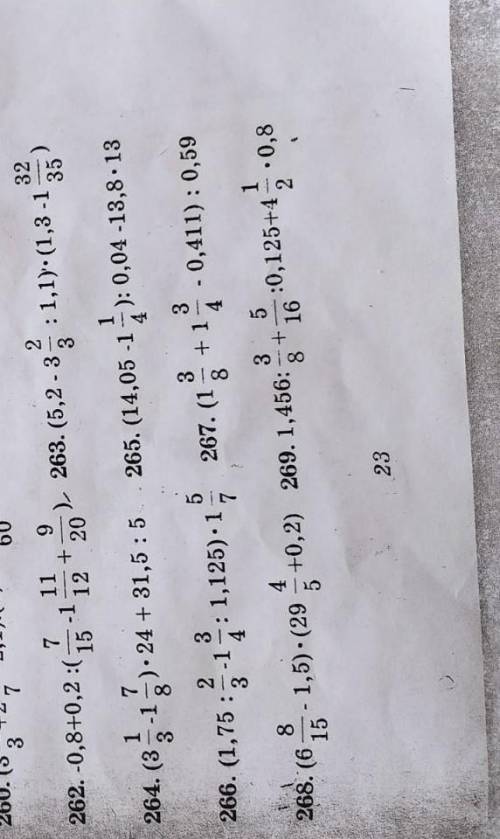 260. (3 1/3 + 2 /7
60
262. -0,8+0,2 :(7/15 -1 11/12 + 9/20) 263. (5,2 - 3 2/3 : 1,1)·(1,3 -1 32/35)
264. (3 1/3 -1 7/8)·24 + 31,5 : 5 265. (14,05 -1 1/4): 0,04 -13,8·13
266. (1,75 : 2/3 -1 3/4 : 1,125)·1 5/7 267. (1 3/8 + 1 3/4 - 0,411) : 0,59
268. (6 8/15 - 1,5)·(29 4/5 +0,2) 269. 1,456: 3/8 + 5/16 :0,125+4 1/2 ·0,8
23